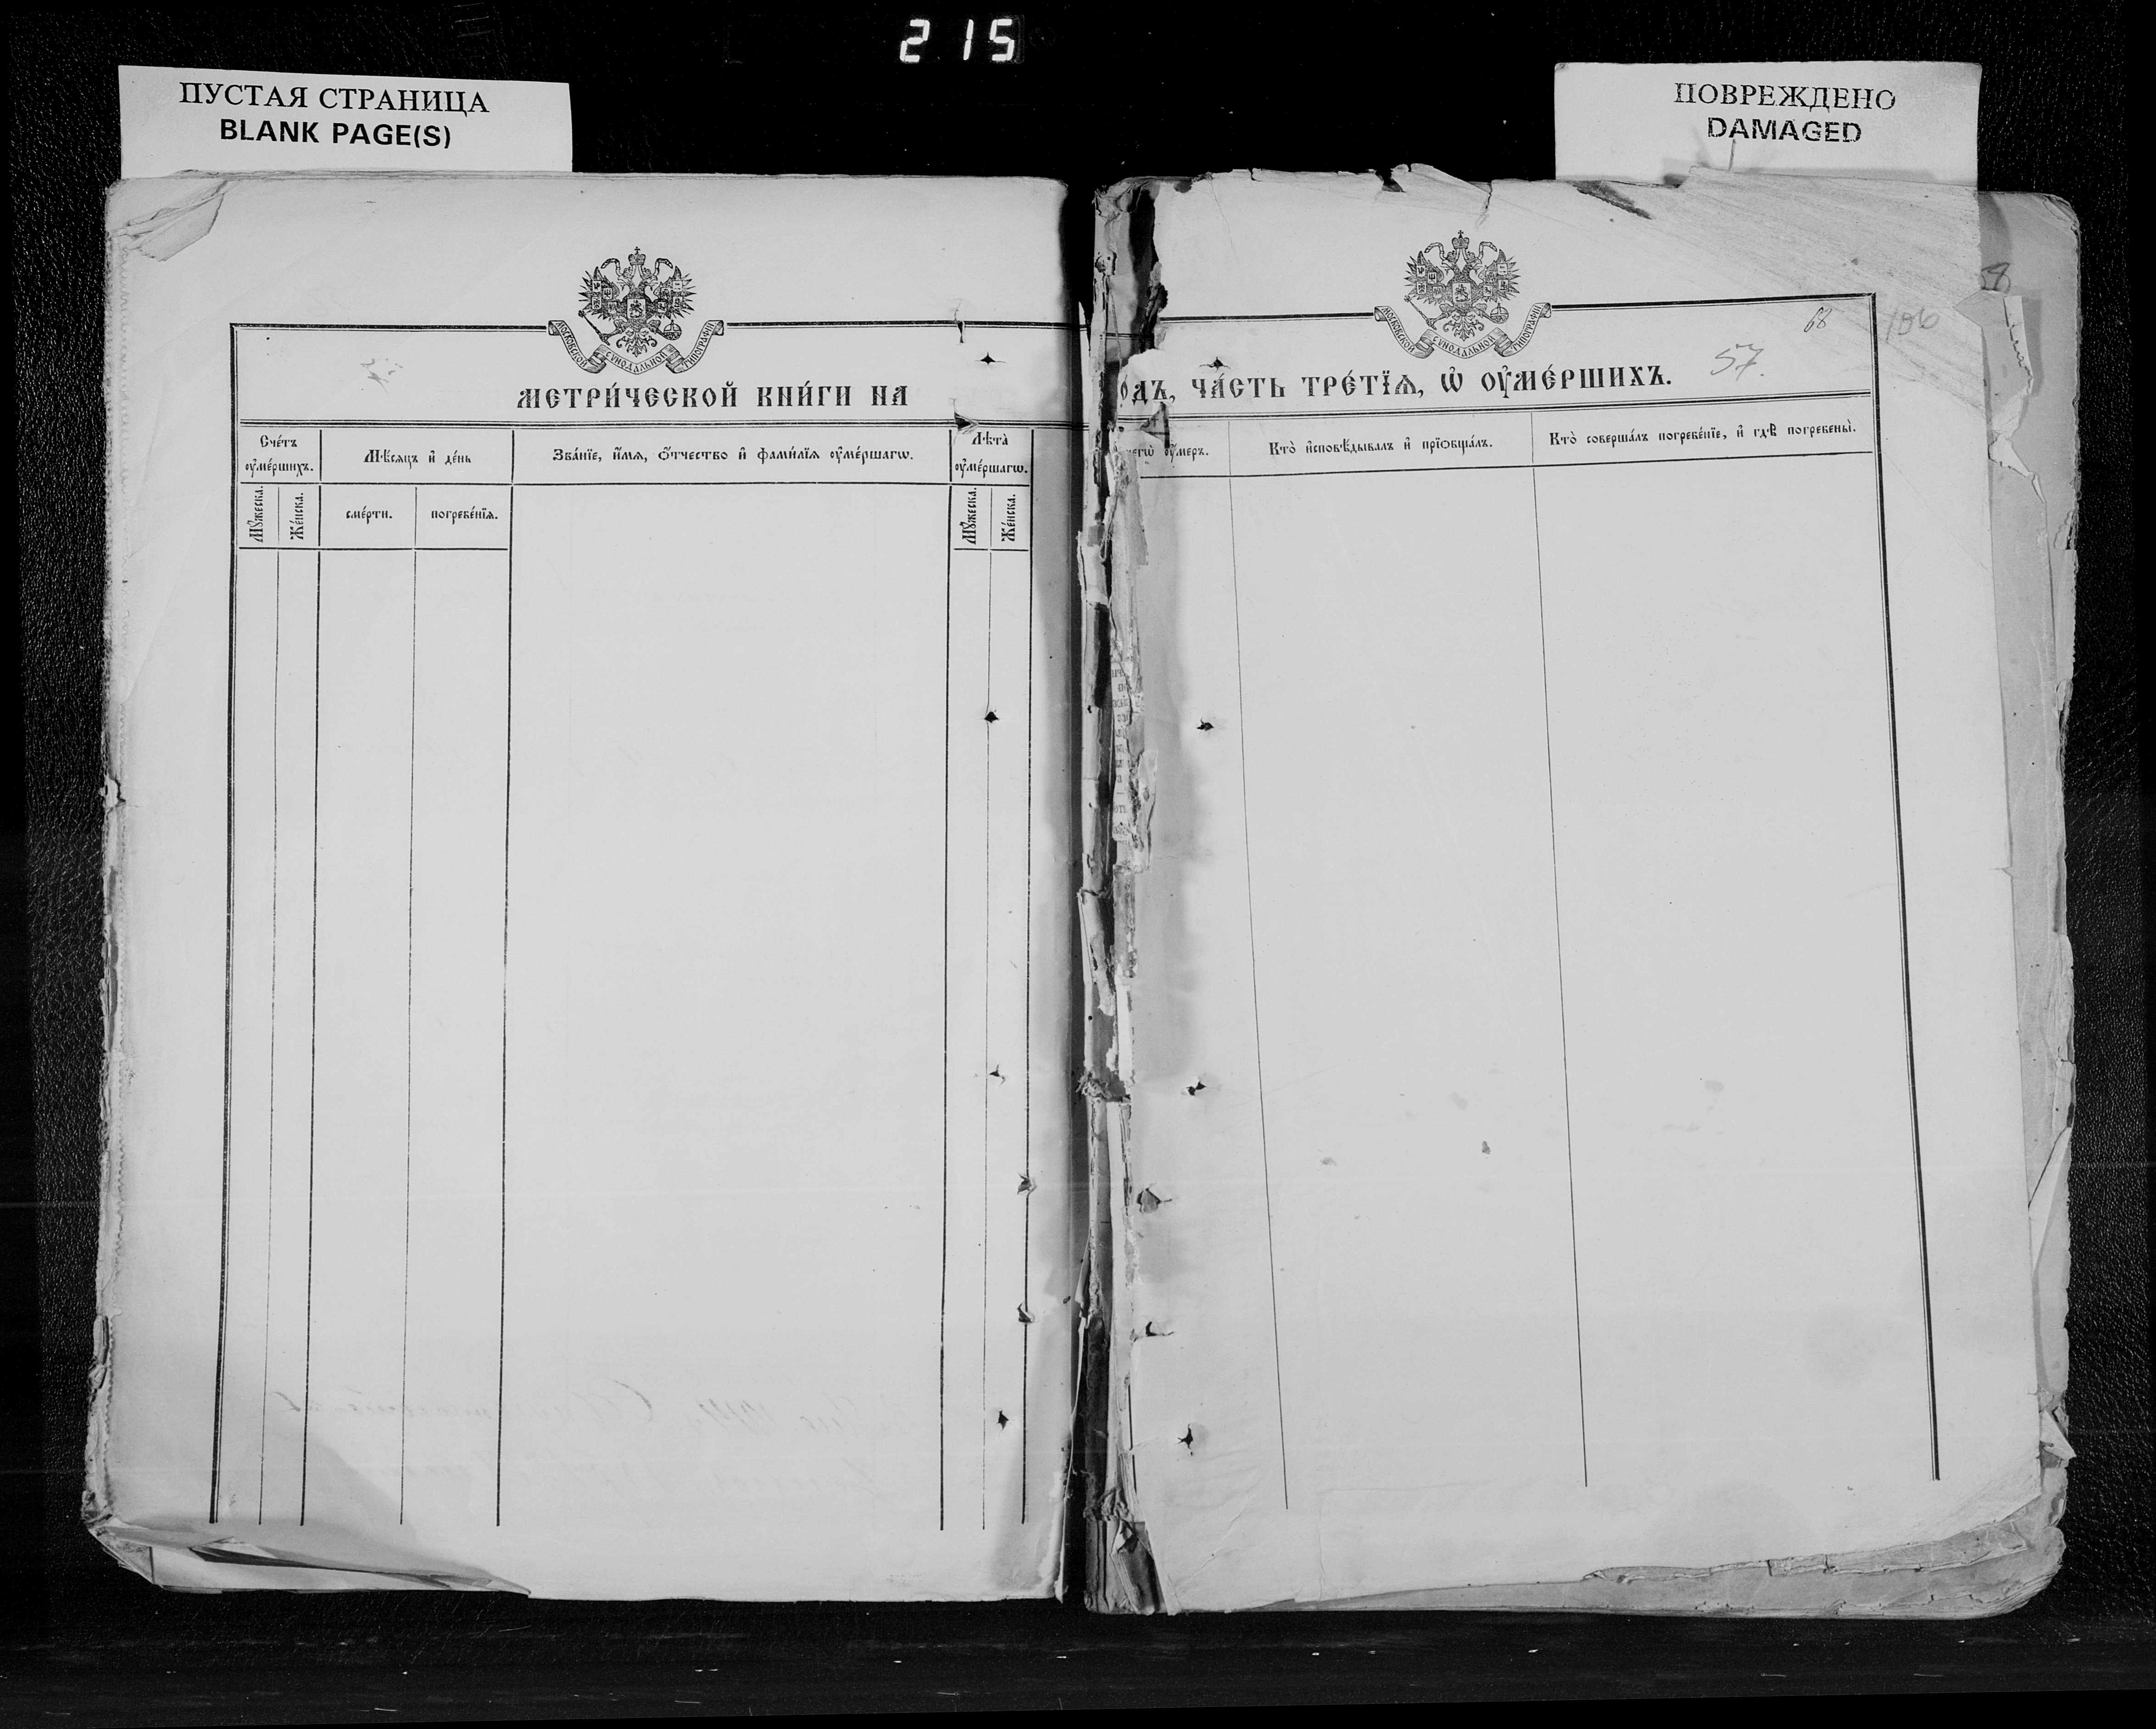 215
ПУСТАЯ СТРАНИЦА
BLANK PAGE(S)
ПОВРЕЖДЕНО
DAMAGED
МОСКОВСКОЙ СѴНОДАЛЬНОЙ ТИПОГРАФІИ
МЕТРИ́ЧЕСКОЙ КНИ́ГИ НА
Сче́тъ
ᲂу҆ме́ршихъ.
Мѣ́сяцъ и҆ де́нь
Зва́нїе, и҆́мѧ, ѻ҆́тчество и҆ фами́лїѧ ᲂу҆ме́ршагѡ.
Лѣта̀
ᲂу҆ме́ршагѡ.
Мꙋ́жеска.
Же́нска.
сме́рти.
погребе́нїѧ.
Мꙋ́жеска.
Же́нска.
МОСКОВСКОЙ СѴНОДАЛЬНОЙ ТИПОГРАФІИ
68
57.
ЧА́СТЬ ТРЕ́ТЇѦ, Ѡ҆ ОУ҆МЕ́РШИХЪ.
ᲂу҆́меръ.
Кто̀ и҆сповѣ́дывалъ и҆ прїѡбща́лъ.
Кто̀ соверша́лъ погребе́нїе, и҆ гдѣ̀ погребены̀.